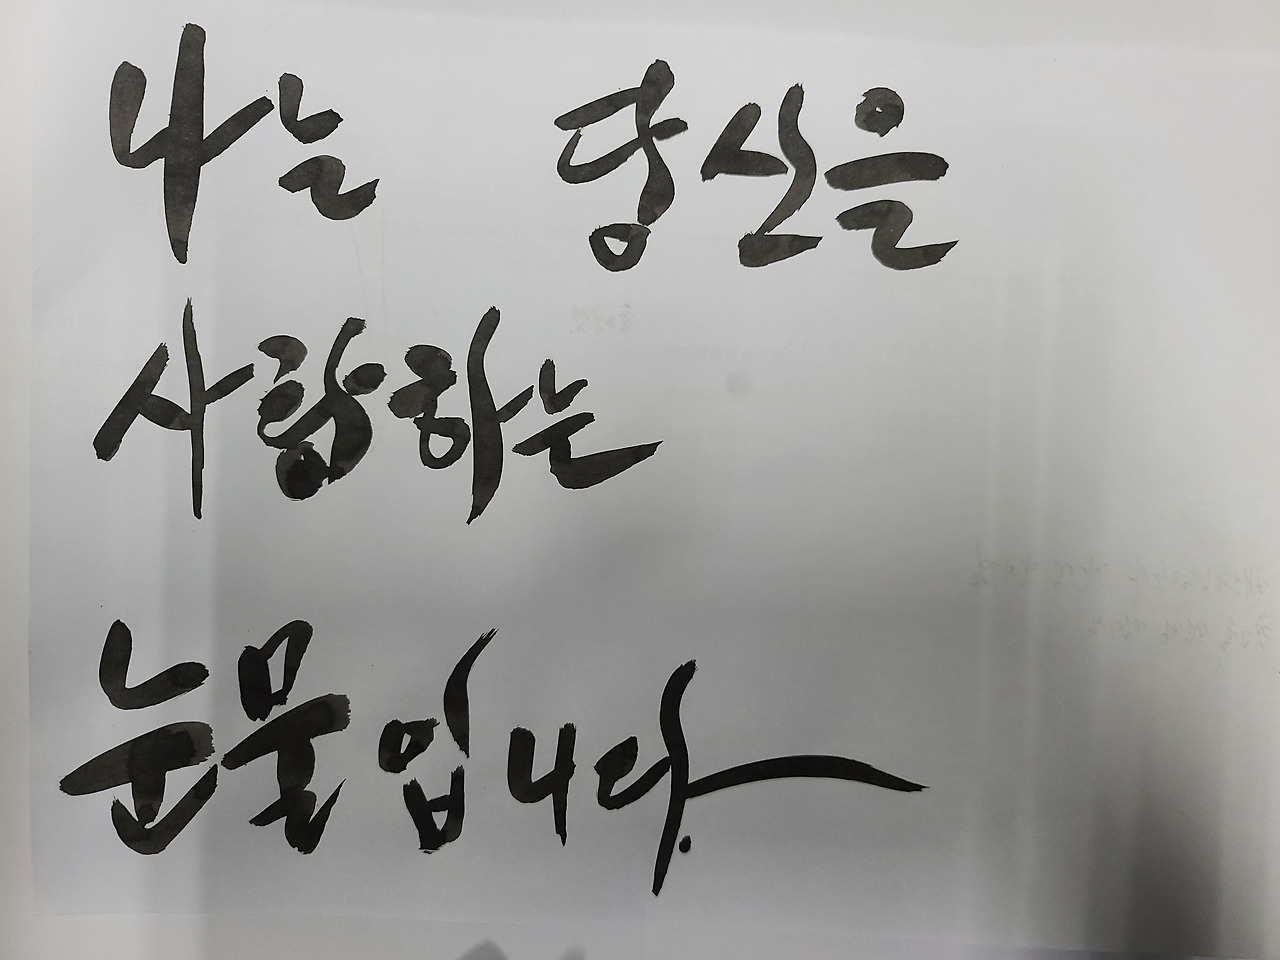 나는 당신을
사랑하는
눈물입니다.